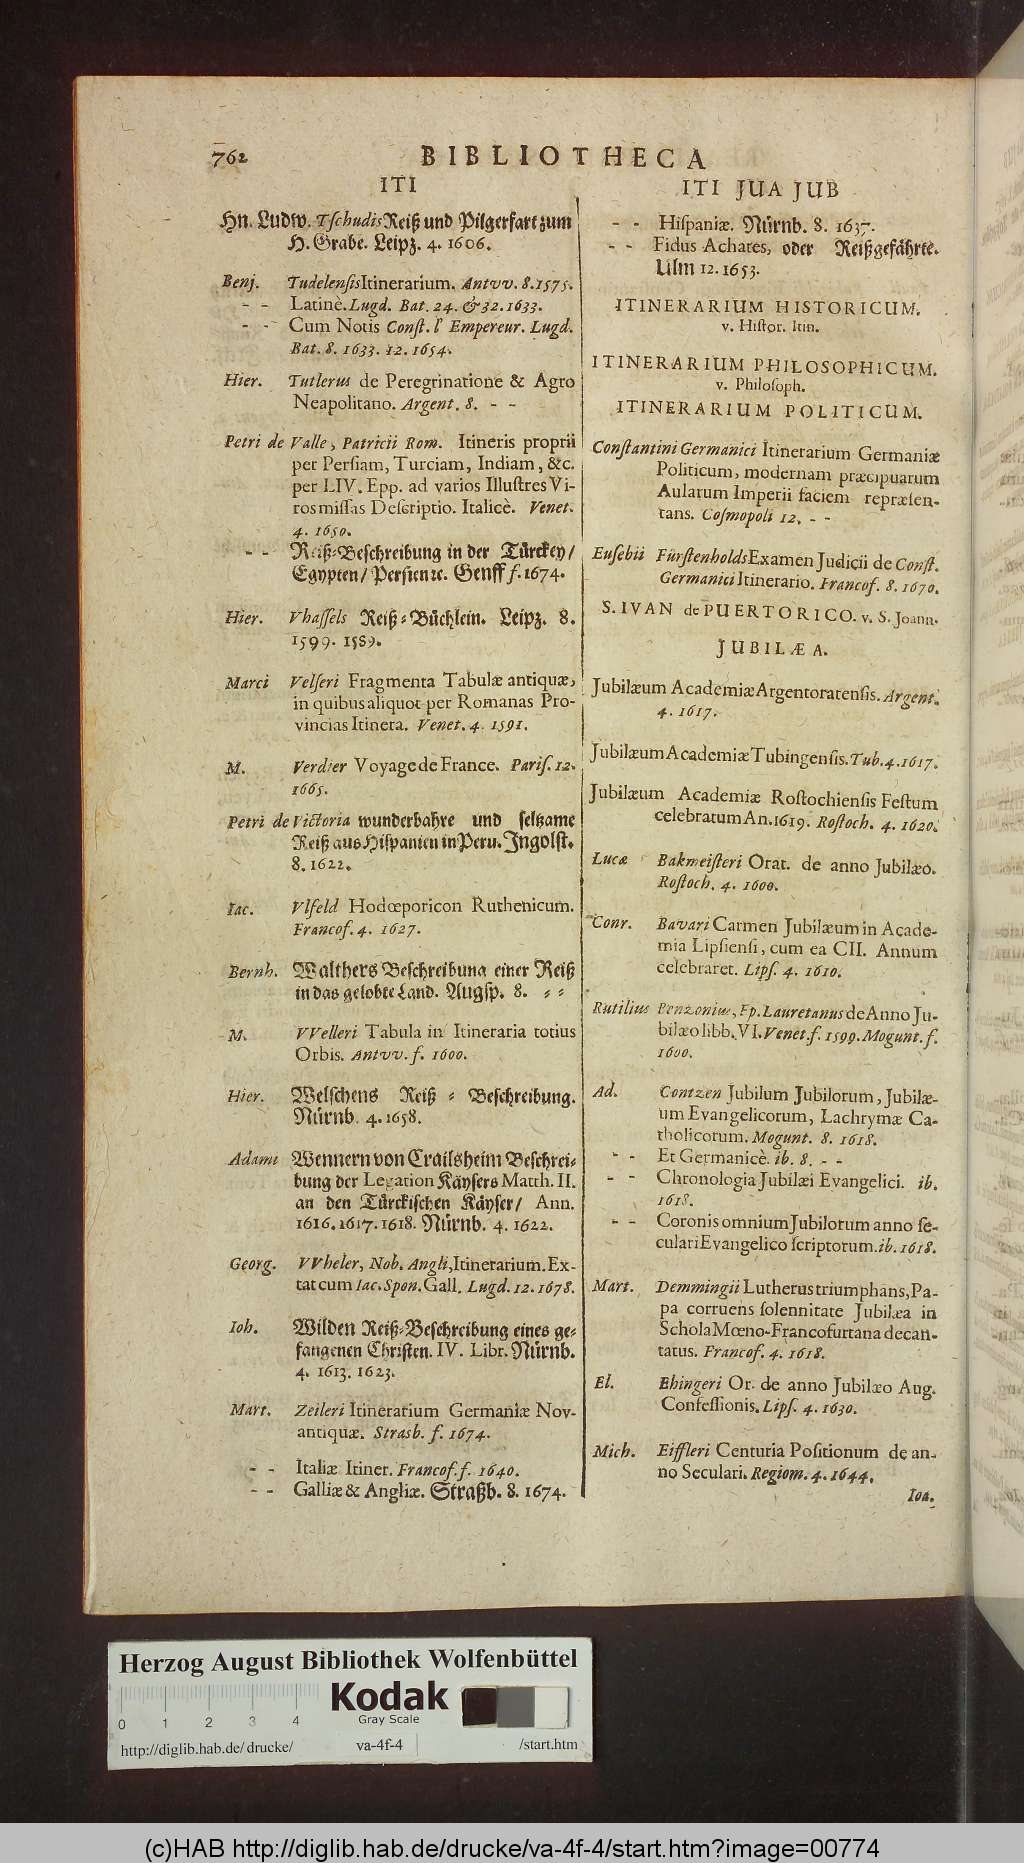 762
BIBLIOTHECA
ITI
Hn. Ludw. Tſchudis Reiß und Pilgerfart zum
H. Grabe. Leipz. 4. 1606.
Benj. Tudelenſis Itinerarium. Antvv. 8. 1575.
- - Latinè. Lugd. Bat. 24. & 32. 1633.
- - Cum Notis Conſt. l' Empereur. Lugd.
Bat. 8. 1633. 12. 1654.
Hier. Tutlerus de Peregrinatione & Agro
Neapolitano. Argent. 8. - -
Petri de Valle, Patricii Rom. Itineris proprii
per Perſiam, Turciam, Indiam, &c.
per LIV. Epp. ad varios Illuſtres Vi-
ros miſſas Deſcriptio. Italicè. Venet.
4. 1650.
- - Reiß-Beſchreibung in der Türckey/
Egypten/ Perſien ꝛc. Genff f. 1674.
Hier. Vhaſſels Reiß-Büchlein. Leipz. 8.
1599. 1589.
Marci Velſeri Fragmenta Tabulæ antiquæ,
in quibus aliquot per Romanas Pro-
vincias Itinera. Venet. 4. 1591.
M. Verdier Voyage de France. Pariſ. 12.
1665.
Petri de Victoria wunderbahre und ſeltzame
Reiß aus Hiſpanien in Peru. Ingolſt.
8. 1622.
Iac. Vlfeld Hodœporicon Ruthenicum.
Francof. 4. 1627.
Bernh. Walthers Beſchreibung einer Reiß
in das gelobte Land. Augſp. 8. - -
M. VVelleri Tabula in Itineraria totius
Orbis. Antvv. f. 1600.
Hier. Welſchens Reiß-Beſchreibung.
Nürnb. 4. 1658.
Adami Wennern von Crailsheim Beſchrei-
bung der Legation Käyſers Matth. II.
an den Türckiſchen Käyſer/ Ann.
1616. 1617. 1618. Nürnb. 4. 1622.
Georg. VVheler, Nob. Angli, Itinerarium. Ex-
tat cum Iac. Spon. Gall. Lugd. 12. 1678.
Ioh. Wilden Reiß-Beſchreibung eines ge-
fangenen Chriſten. IV. Libr. Nürnb.
4. 1613. 1623.
Mart. Zeileri Itinerarium Germaniæ Nov-
antiquæ. Strasb. f. 1674.
- - Italiæ Itiner. Francof. f. 1640.
- - Galliæ & Angliæ. Straßb. 8. 1674.
ITI JUA JUB
- - Hiſpaniæ. Nürnb. 8. 1637.
- - Fidus Achates, oder Reißgefährte.
Ulm 12. 1653.
ITINERARIUM HISTORICUM.
v. Hiſtor. Itin.
ITINERARIUM PHILOSOPHICUM.
v. Philoſoph.
ITINERARIUM POLITICUM.
Conſtantini Germanici Itinerarium Germaniæ
Politicum, modernam præcipuarum
Aularum Imperii faciem repræſen-
tans. Coſmopoli 12. - -
Euſebii Fürſtenholds Examen Judicii de Conſt.
Germanici Itinerario. Francof. 8. 1670.
S. IVAN de PUERTORICO. v. S. Joann.
JUBILÆA.
Jubilæum Academiæ Argentoratenſis. Argent.
4. 1617.
Jubilæum Academiæ Tubingenſis. Tub. 4. 1617.
Jubilæum Academiæ Roſtochienſis Feſtum
celebratum An. 1619. Roſtoch. 4. 1620.
Lucæ Bakmeiſteri Orat. de anno Jubilæo.
Roſtoch. 4. 1600.
Conr. Bavari Carmen Jubilæum in Acade-
mia Lipſienſi, cum ea CII. Annum
celebraret. Lipſ. 4. 1610.
Rutilius Benzonius, Ep. Lauretanus de Anno Ju-
bilæo libb. VI. Venet. f. 1599. Mogunt. f.
1600.
Ad. Contzen Jubilum Jubilorum, Jubilæ-
um Evangelicorum, Lachrymæ Ca-
tholicorum. Mogunt. 8. 1618.
- - Et Germanicè. ib. 8. - -
- - Chronologia Jubilæi Evangelici. ib.
1618.
- - Coronis omnium Jubilorum anno ſe-
culari Evangelico ſcriptorum. ib. 1618.
Mart. Demmingii Lutherus triumphans, Pa-
pa corruens ſolennitate Jubilæa in
Schola Mœno-Francofurtana decan-
tatus. Francof. 4. 1618.
El. Ehingeri Or. de anno Jubilæo Aug.
Confeſſionis. Lipſ. 4. 1630.
Mich. Eiffleri Centuria Poſitionum de an-
no Seculari. Regiom. 4. 1644.
Ioa.
Herzog August Bibliothek Wolfenbüttel
Kodak
Gray Scale
0 1 2 3 4
http://diglib.hab.de/drucke/ va-4f-4 /start.htm
(c)HAB http://diglib.hab.de/drucke/va-4f-4/start.htm?image=00774